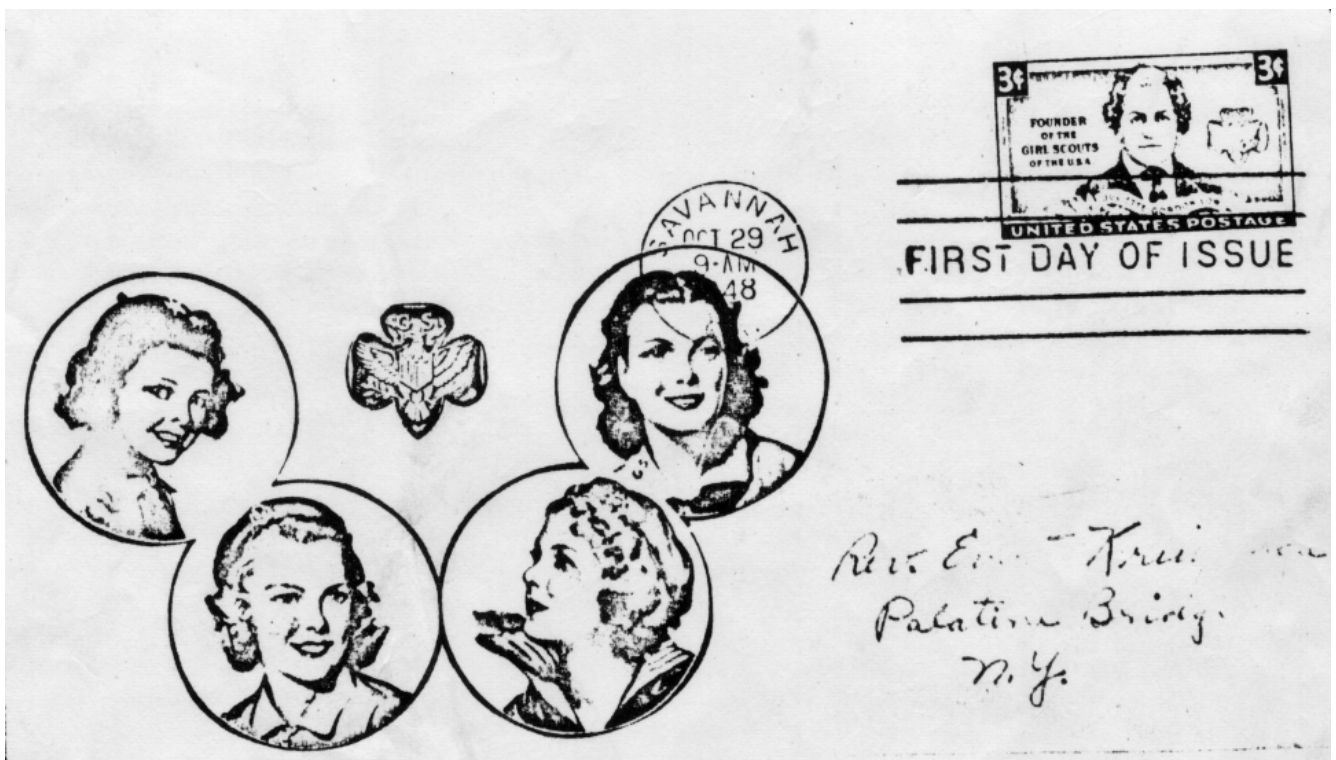 3¢ 3¢
FOUNDER
OF THE
GIRL SCOUTS
OF THE U.S.A
UNITED STATES POSTAGE
SAVANNAH
OCT 29
9-AM
48
FIRST DAY OF ISSUE
Rev.
Palatine Bridge
N.Y.